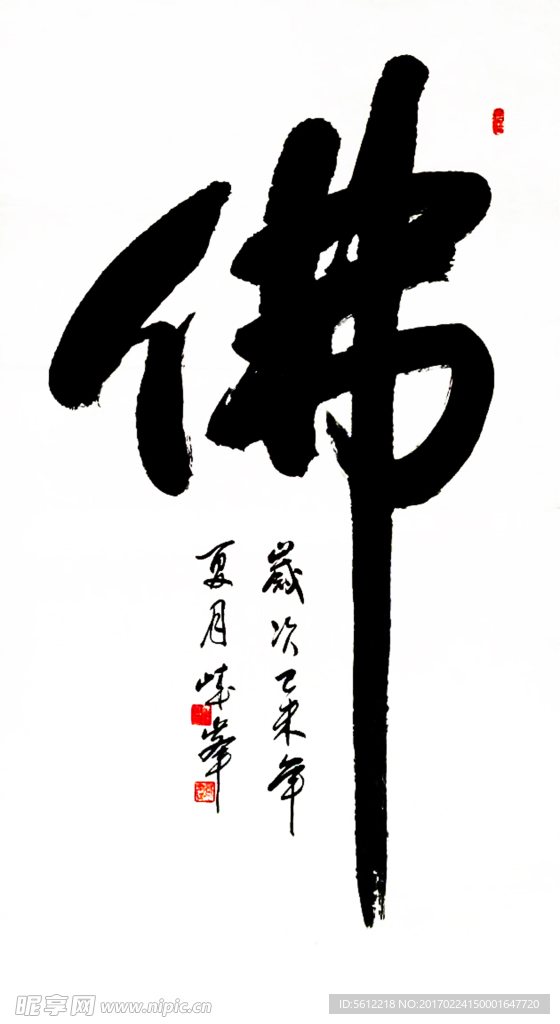 佛
歲次乙未年
夏月峰峯
昵享网 www.nipic.cn
ID:5612218 NO:20170224150001647720